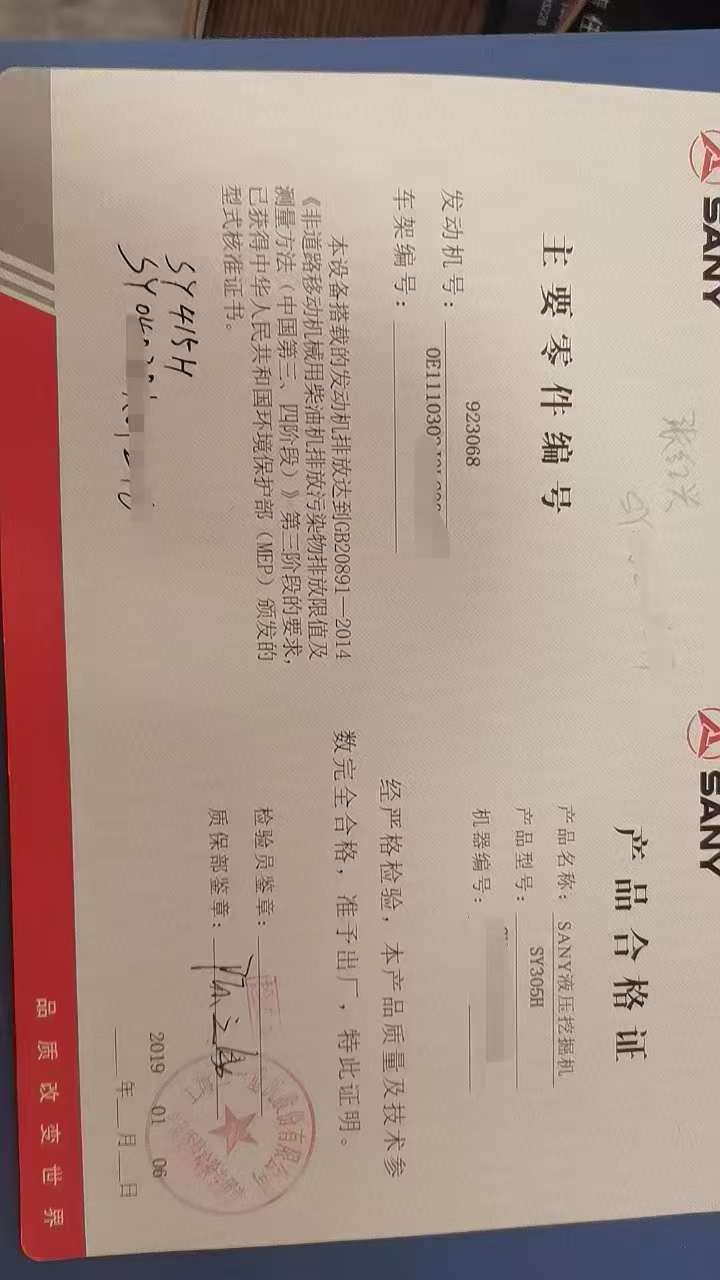 SANY
主要零件编号
发动机号：
923068
0E111030
车架编号：
本设备搭载的发动机排放达到GB20891—2014
《非道路移动机械用柴油机排放污染物排放限值及
测量方法（中国第三、四阶段）》第三阶段的要求，
已获得中华人民共和国环境保护部（MEP）颁发的
型式核准证书。
SY415H
SANY
产品合格证
产品名称：SANY液压挖掘机
产品型号：SY305H
机器编号：
经严格检验，本产品质量及技术参
数完全合格，准予出厂，特此证明。
检验员鉴章：
质保部鉴章：
2019 01 06
年 月 日
品质改变世界